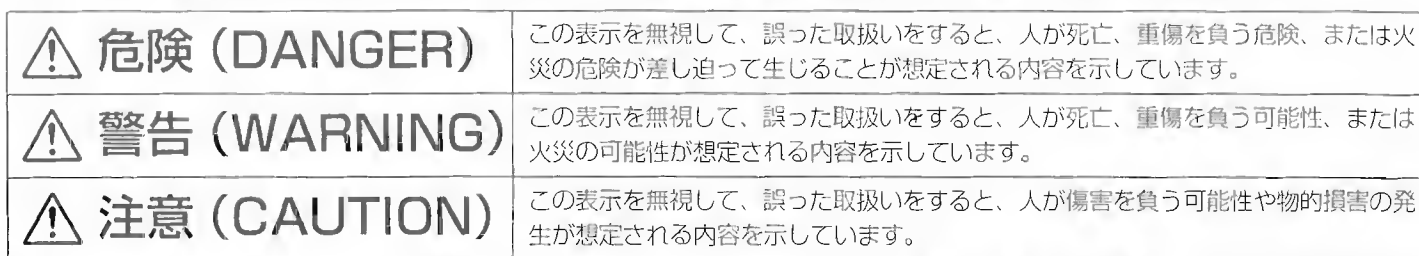 危険 (DANGER)
この表示を無視して、誤った取扱いをすると、人が死亡、重傷を負う危険、または火
災の危険が差し迫って生じることが想定される内容を示しています。
警告 (WARNING)
この表示を無視して、誤った取扱いをすると、人が死亡、重傷を負う可能性、または
火災の可能性が想定される内容を示しています。
注意 (CAUTION)
この表示を無視して、誤った取扱いをすると、人が傷害を負う可能性や物的損害の発
生が想定される内容を示しています。